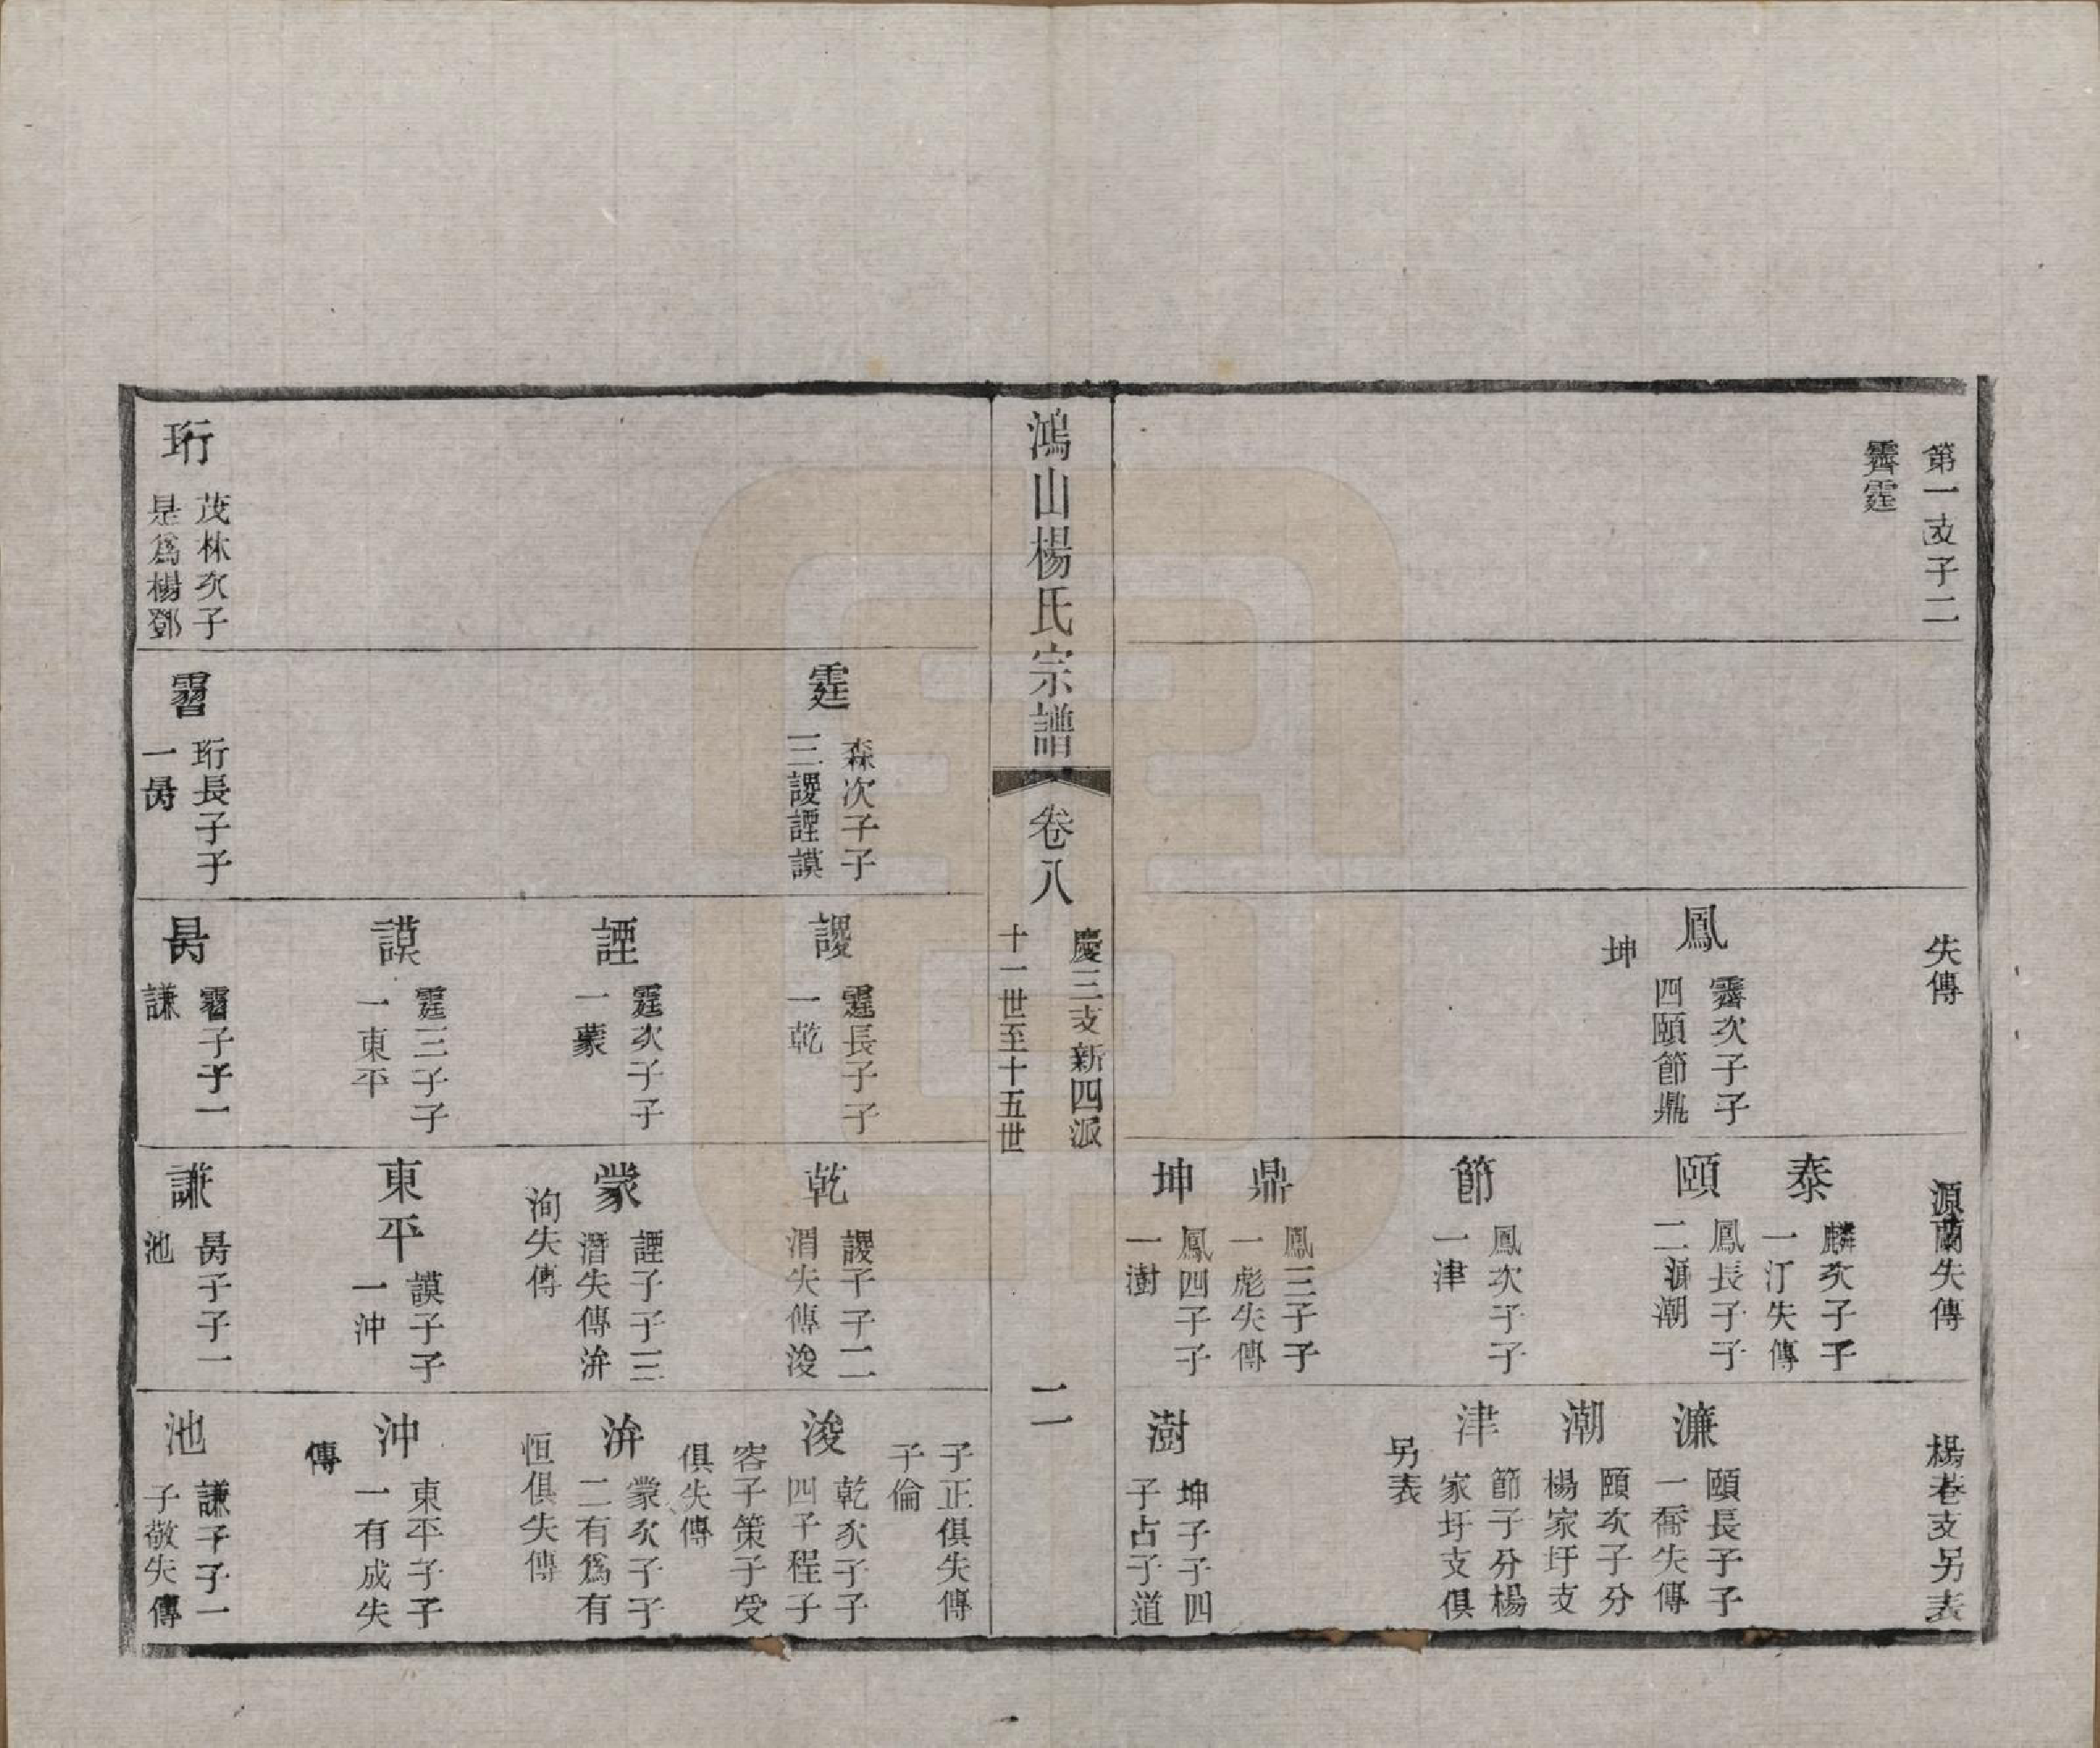 第一支子二
霽霆
失傳
鳳
霽次子子
四頤節鼎
坤
源蘭失傳
泰
麟次子子
一汀失傳
頤
鳳長子子
二濂潮
節
鳳次子子
一津
鼎
鳳三子子
一彪失傳
坤
鳳四子子
一澍
楊巷支另表
濂
頤長子子
一喬失傳
潮
頤次子分
楊家圩支
津
節子分楊
家圩支俱
另表
澍
坤子子四
子占子道
鴻山楊氏宗譜
卷八
慶三支新四派
十一世至十五世
二
霆
森次子子
三謖諲謨
謖
霆長子子
一乾
諲
霆次子子
一蒙
謨
霆三子子
一東平
乾
謖子子二
渭失傳浚
蒙
諲子子三
潛失傳洴
洵失傳
東平
謨子子
一沖
子正俱失傳
子倫
浚
乾次子子
四子程子
容子策子受
俱失傳
洴
蒙次子子
二有爲有
恒俱失傳
沖
東平子子
一有成失
傳
珩
茂林次子
是爲楊鄧
霫
珩長子子
一昺
昺
霫子子一
謙
謙
昺子子一
池
池
謙子子一
子敬失傳